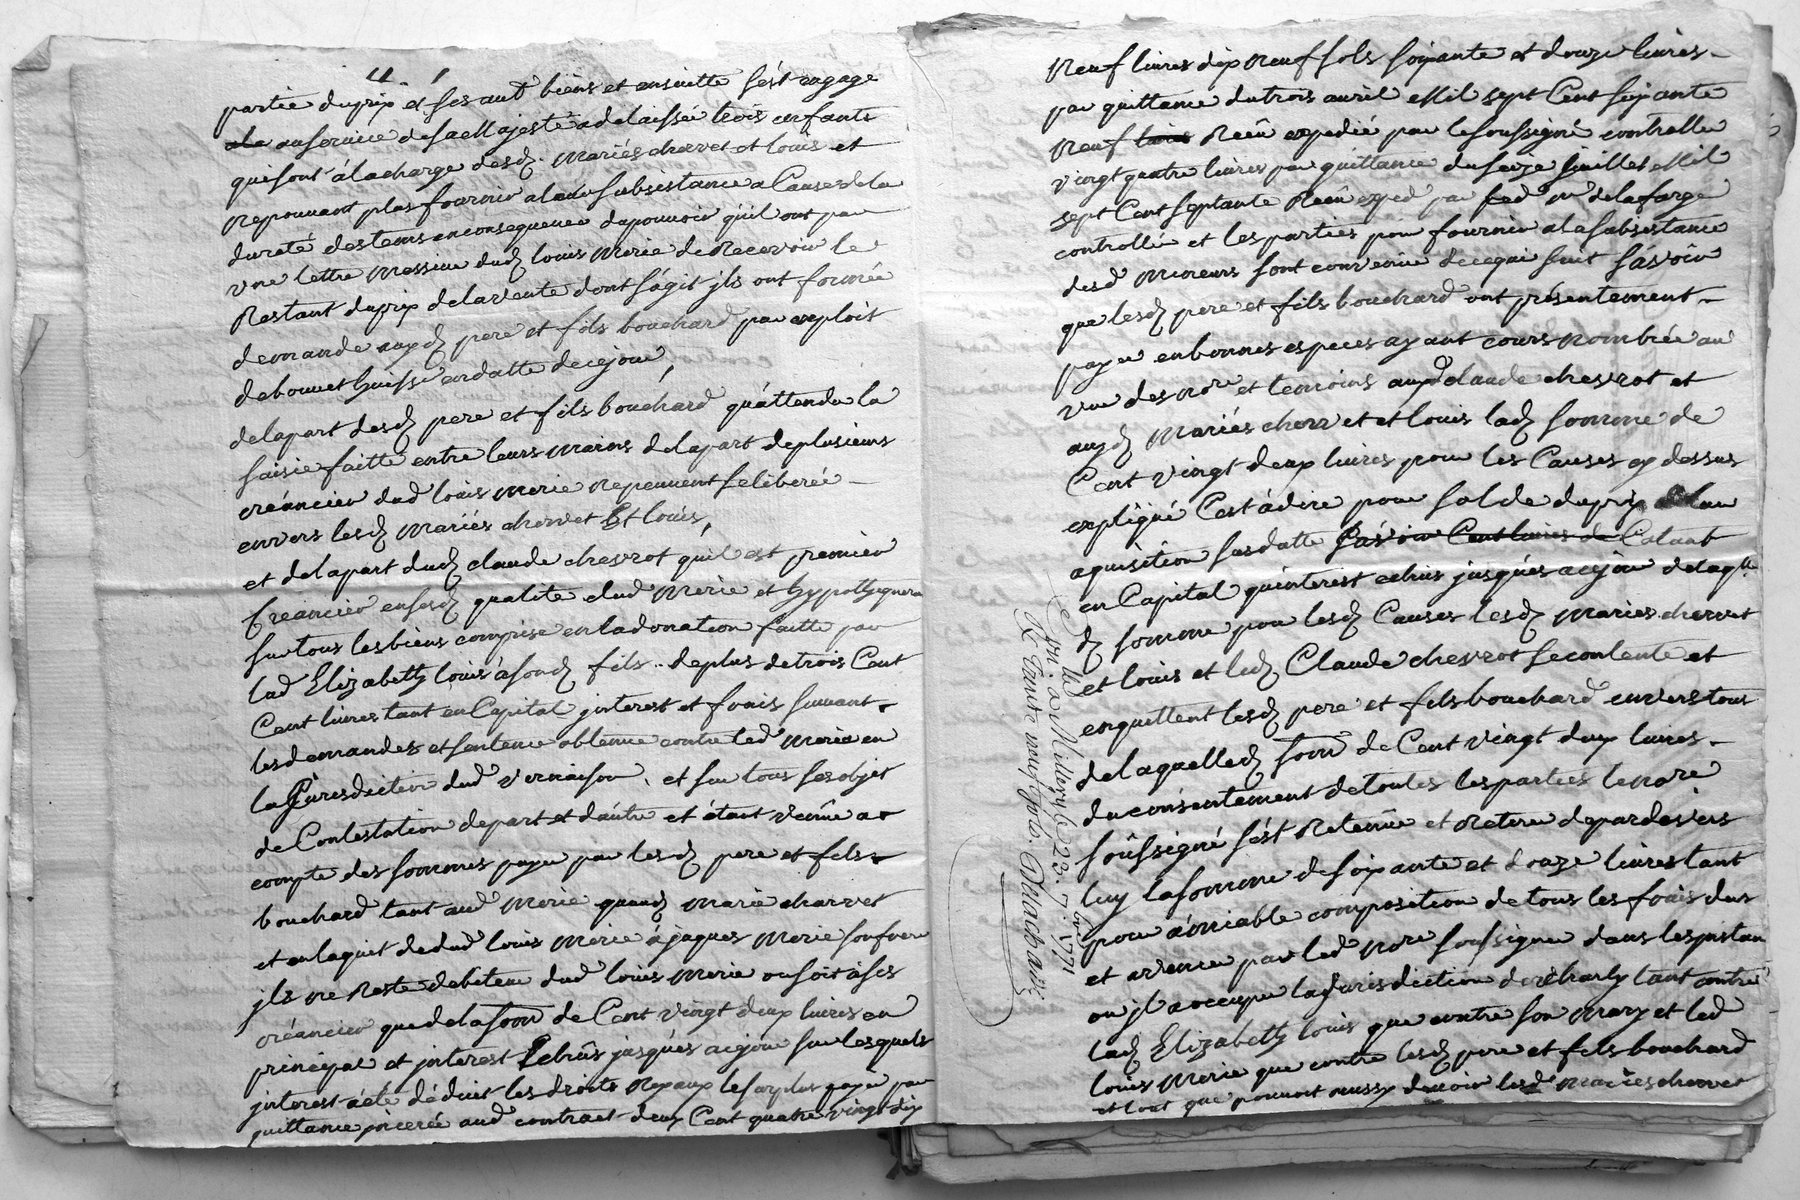 partie du prix et ses aut biens et ensuitte s'est engagé
au service de sa Majesté a delaissée trois enfants
qui sont à la charge desd. mariés chervet et louis et
ne pouvant plus fournir a leur subsistance a Cause de la
dureté des tems en consequence du pouvoir qu'il ont par
une lettre missive dud louis Merie de Recevoir le
Restant du prix de la vente dont s'ágit jls ont formée
demande auxd pere et fils bouchard par exploit
de bonnet huissr en datte de ce jour,
de la part desd pere et fils bouchard qu'áttendu la
saisie faitte entre leurs mains de la part de plusieurs
créancier dud louis Merie ne peuvent se liberée
envers lesd mariés chervet Et louis,
et de la part dud claude chevrot qu'il est premier
Creancier en sesd qualité dud Merie et hypothequera
sur tous les biens comprise en la donation faitte par
lad Elizabeth louis à sond fils de plus de trois Cent
Cent livres tant en Capital jnterest et frais suivant
les demandes et sentence obtenue contre led Merie en
la Jurisdiction dud vernaison, et sur tous ses objet
de Contestation de part et d'autre et étant venüe a
compte des sommes payer par lesd pere et fils
bouchard tant aud Merie quaud Marié chervet
et en laquit de dud louis Merie à jaques Merie son frere
jls ne Reste debiteur dud louis Merie ou soit à ses
créancier que de la som de Cent vingt deux livres en
principal et jnterest Echûs jusqués a ce jour sur lesquels
jnterest a été déduit les droits Royaux le surplus payer par
quittance jncerée aud contract deux Cent quatre vingt dix
Neuf livres dix Neuf sols soixante et douze livres
par quittance du trois avril Mil sept Cent soixante
Neuf livres Reçû expedié par le soussigné controlle
vingt quatre livres par quittance du seize juillet Mil
sept Cent septante Reçû exped par led mr delafarge
controllé et les parties pour fournir a la subsistance
desd Mineurs sont convenüe de ce qui suit sçávoir
que lesd pere et fils bouchard ont présentement
payer en bonnes especes ayant cours nombrée au
vue des nore et temoins auxd claude chevrot et
auxd Mariés chervet et louis lad somme de
Cent vingt deux livres pour les Causes cy dessus
expliqué C'est à dire pour solde du prix de leur
aquisition susdatte sçávoir Cent livres de Ca tant
en Capital qu'interest echûs jusqués a ce jour de laqlle
d somme pour lesd Causes lesd Mariés chervet
et louis et led Claude chevrot se contente et
en quittent lesd pere et fils bouchard envers tous
de laquelled som de Cent vingt deux livres
du consentement de toutes les parties le nore
soussigné s'est Retenüe et Retire de par devers
luy la somme de soixante et douze livres tant
pour a'miable composition de tous les frais dus
et avancé par led nore soussigné dans les jnstan
ou jl a occuper la jurisdiction de charly tant contre
lad Elizabeth louis que contre son mary et led
louis Merie que contre lesd pere et fils bouchard
et tout que pouvoit aussy devoir lesd mariés chervet
Cé. le
à Millery le 23. 7.bre 1771
R. trente neuf sols.